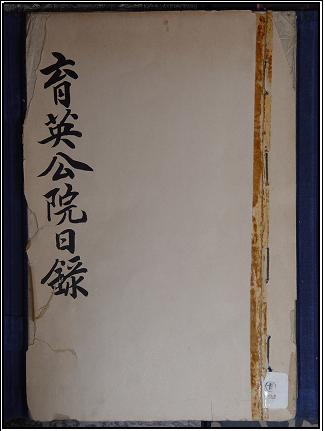 育英公院日錄